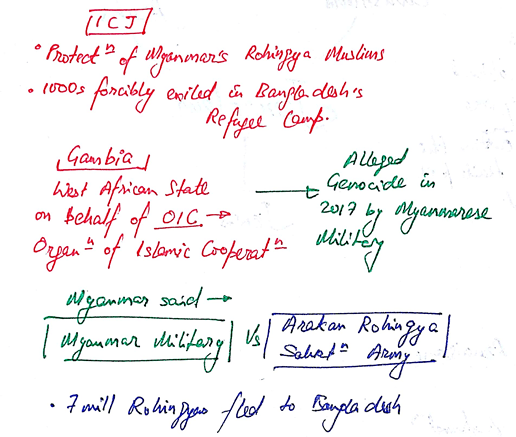 ICJ
• Protectⁿ of Myanmar's Rohingya Muslims
• 1000s forcibly exiled in Bangladesh's
Refugee Camp.
Gambia
West African State
on Behalf of OIC →
Organⁿ of Islamic Cooperatⁿ
Alleged
Genocide in
2017 by Myanmarese
Military
Myanmar said →
Myanmar Military Vs Arakan Rohingya
Salvatⁿ Army.
• 7 mill Rohingyas fled to Bangladesh